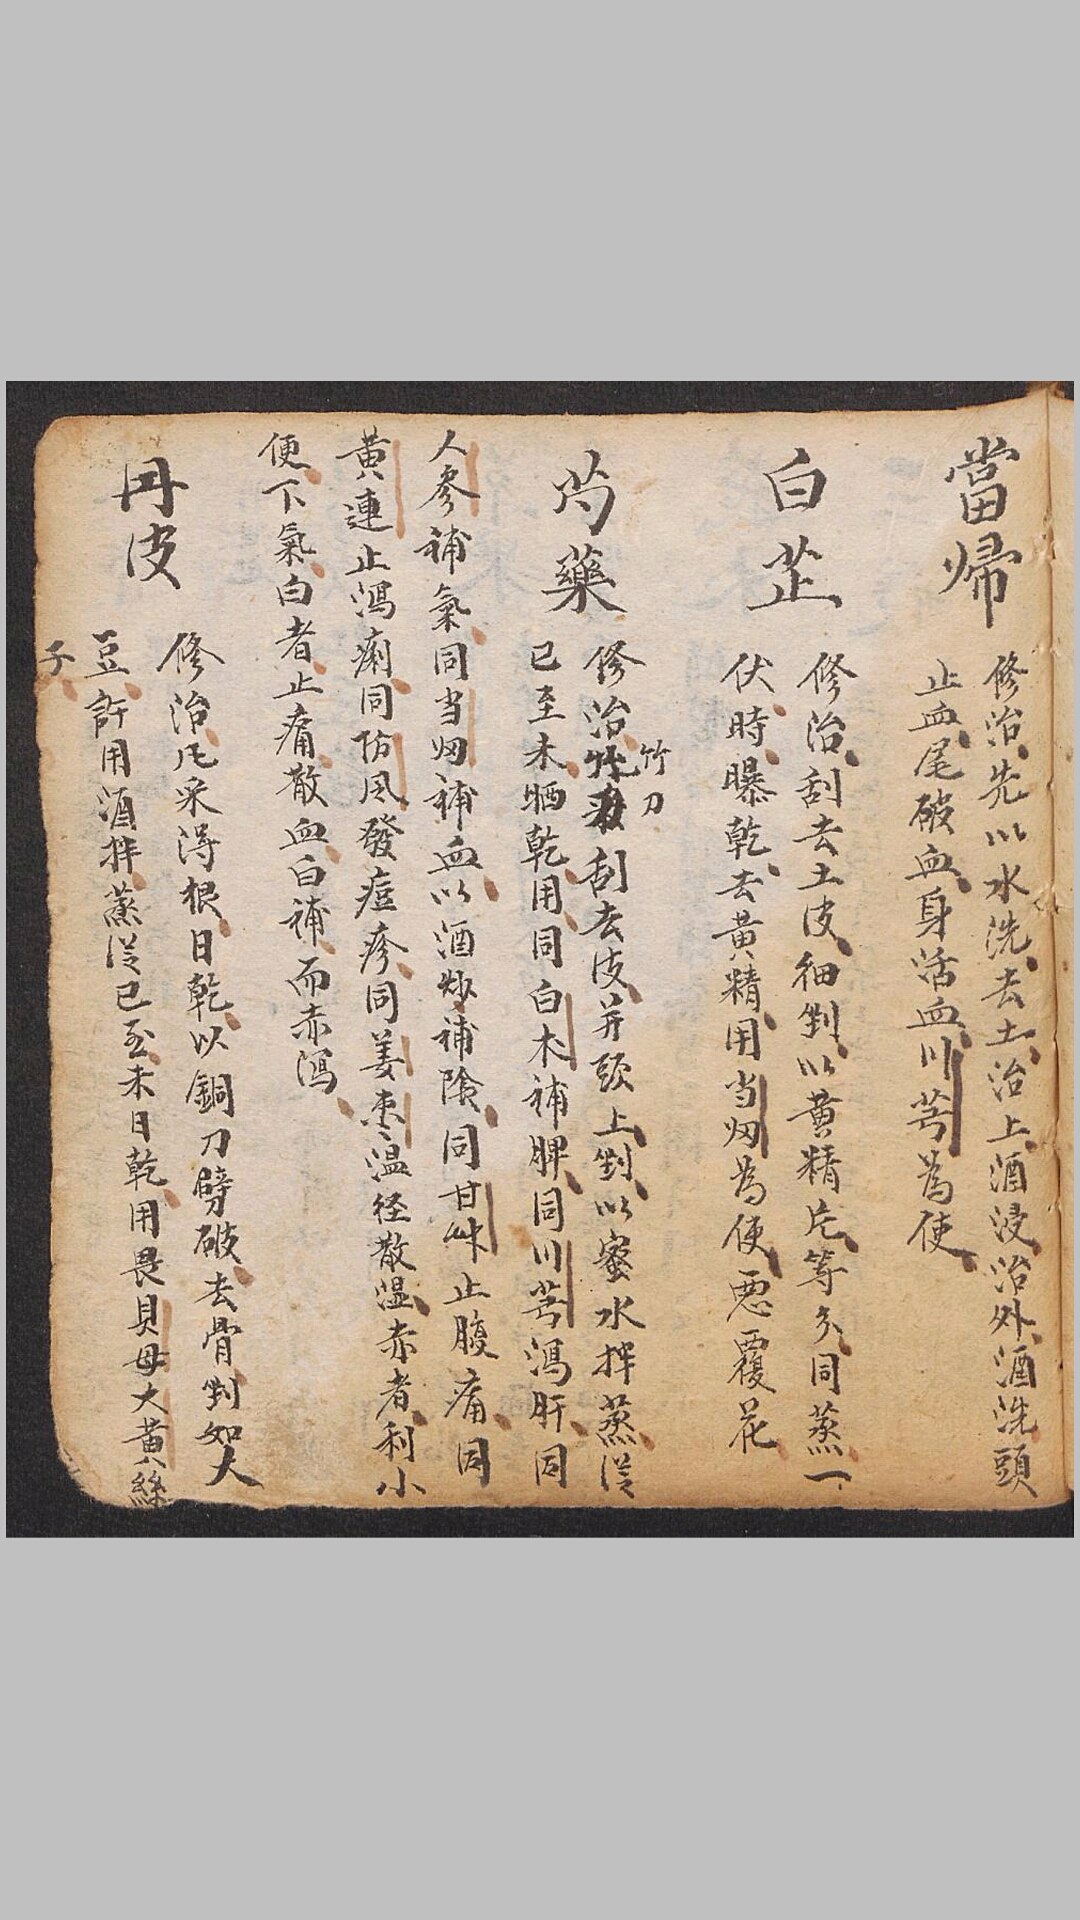 當歸
修治先以水洗去土治上酒浸治外酒洗頭
止血尾破血身活血川芎為使
白芷
修治刮去土皮細剉以黄精片等分同蒸一
伏時曝乾去黄精用当归為使惡覆花
芍藥
修治竹刀刮去皮并頭上剉以蜜水拌蒸從
巳至未晒乾用同白术補脾同川芎瀉肝同
人參補氣同当归補血以酒炒補陰同甘艸止腹痛同
黄連止瀉痢同防风發痘疹同姜枣温径散湿赤者利小
便下氣白者止痛散血白補而赤瀉
丹皮
修治凡采得根日乾以銅刀劈破去骨剉如大
豆許用酒拌蒸從巳至未日乾用畏貝母大黄絲
子